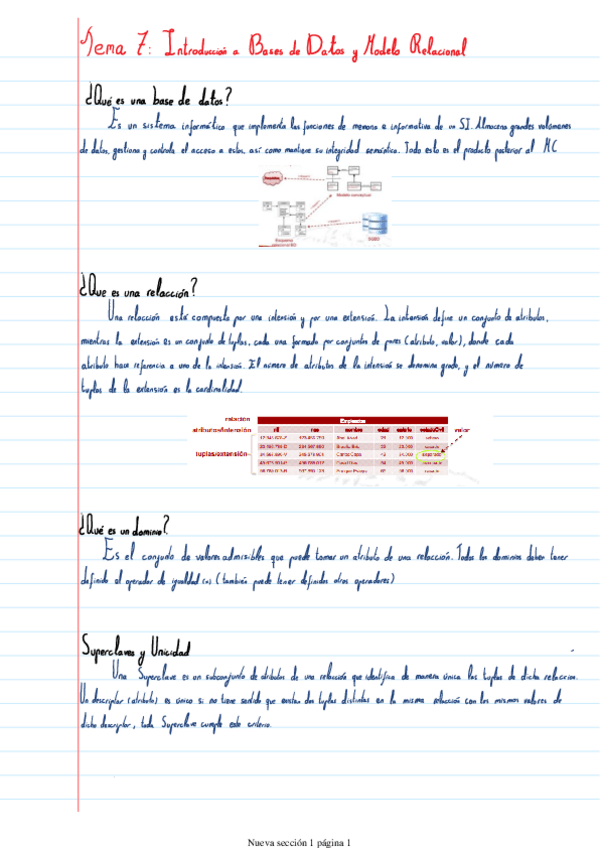 Tema 7: Introducción a Bases de Datos y Modelo Relacional
¿Qué es una base de datos?
Es un sistema informático que implementa las funciones de memoria e informativa de un SI. Almacena grandes volúmenes
de datos, gestiona y controla el acceso a estos, así como mantiene su integridad semántica. Todo esto es el producto posterior al MC
¿Que es una relacción?
Una relacción está compuesta por una intensión y por una extensión. La intensión define un conjunto de atributos,
mientras la extensión es un conjunto de tuplas, cada una formada por conjuntos de pares (atributo, valor), donde cada
atributo hace referencia a uno de la intensión. El número de atributos de la intensión se denomina grado, y el número de
tuplas de la extensión es la cardinalidad.
relación
Empleados
atributos/intensión
nif
nss
nombre
edad
salario
estadoCivil
valor
tuplas/extensión
¿Qué es un dominio?
Es el conjunto de valores admisibles que puede tomar un atributo de una relacción. Todos los dominios deben tener
definido el operador de igualdad (=) (también puede tener definidos otros operadores)
Superclaves y Unicidad
Una Superclave es un subconjunto de atributos de una relacción que identifica de manera única las tuplas de dicha relaccion.
Un descriptor (atributo) es único si no tiene sentido que existan dos tuplas distintas en la misma relacción con los mismos valores de
dicho descriptor, toda Superclave cumple este criterio.
Nueva sección 1 página 1